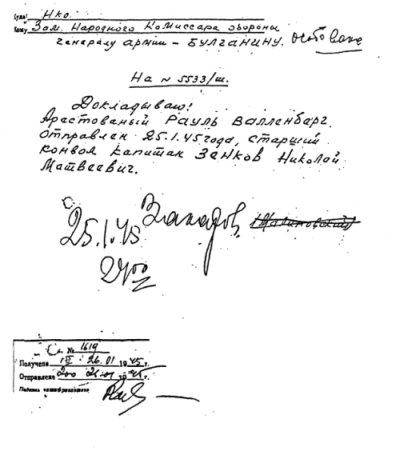 Куда НКО.
Кому Зам. Народного Комиссара обороны
генералу армии – БУЛГАНИНУ.
На № 5533/ш.
Докладываю!
Арестованый Рауль Валленбарг.
отправлен 25.1.45 года, старший
конвоя капитан Зенков Николай
Матвеевич.
Захаров
25.1.45
2400
№ 1619
Получена 26.01 1945 г.
Отправлена 200 1945 г.
Подпись